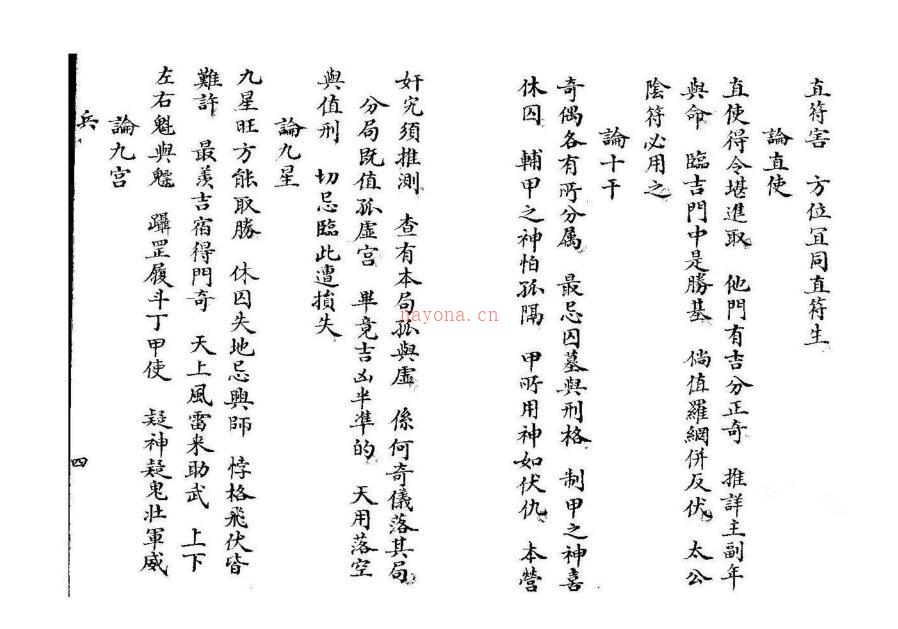 直符害　方位宜同直符生
論直使
直使得令堪進取　他門有吉分正奇　推詳主副年
與命　臨吉門中是勝基　倘值羅網併反伏　太公
陰符必用之
論十干
奇偶各有所分属　最忌囚墓與刑格　制甲之神喜
休囚　輔甲之神怕孤隔　甲所用神如伏仇　本營
奸宄須推測　查有本局孤與虛　係何奇儀落其局
分局既值孤虛宫　畢竟吉凶半準的　天用落空
與值刑　切忌臨此遭損失
論九星
九星旺方能取勝　休囚失地忌興師　悖格飛伏皆
難許　最羡吉宿得門奇　天上風雷来助武　上下
左右魁與魓　躡罡履斗丁甲使　疑神疑鬼壯軍威
論九宫
兵
四
nayona.cn